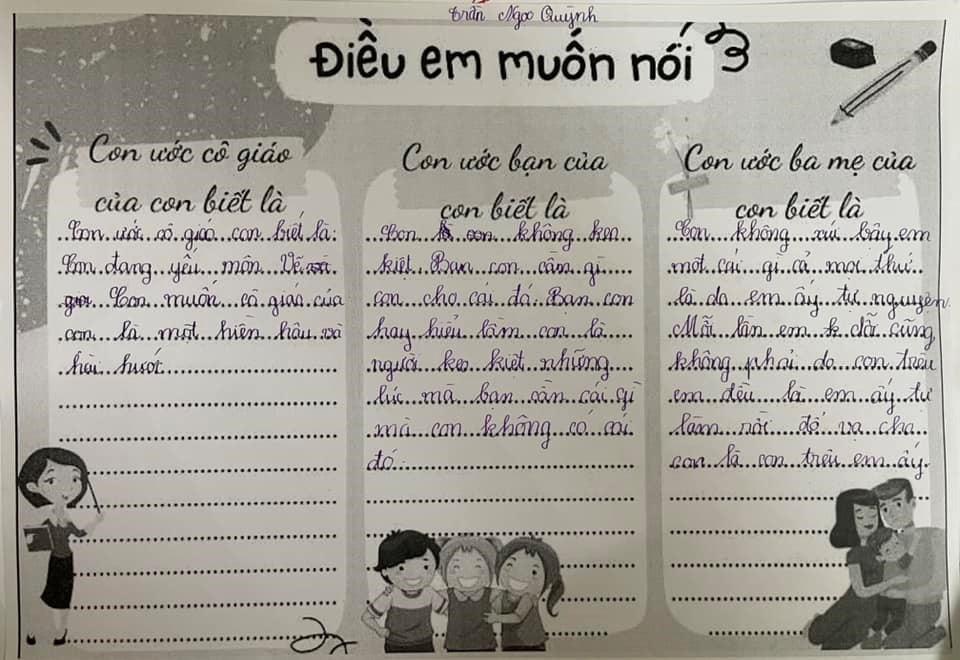 Trần Ngọc Quỳnh
Điều em muốn nói
Con ước cô giáo
của con biết là
Con ước cô giáo con biết là:
Con đang yếu môn Vẽ và
Con muốn cô giáo của
con là một hiền hậu và
hài hướt.
Con ước bạn của
con biết là
Con là con không keo
kiệt Bạn con cầm gì
con cho cái đó. Bạn con
hay hiểu lầm con là
người keo kiệt những
lúc mà bạn cần cái gì
mà con không có cái
đó.
Con ước ba mẹ của
con biết là
Con không xúi bậy em
một cái gì cả mọi thứ
là do em ấy tự nguyện.
Mỗi lần em dỗi cũng
không phải do con trêu
em đều là em ấy tự
làm rồi đổ vạ cho
con là con trêu em ấy.